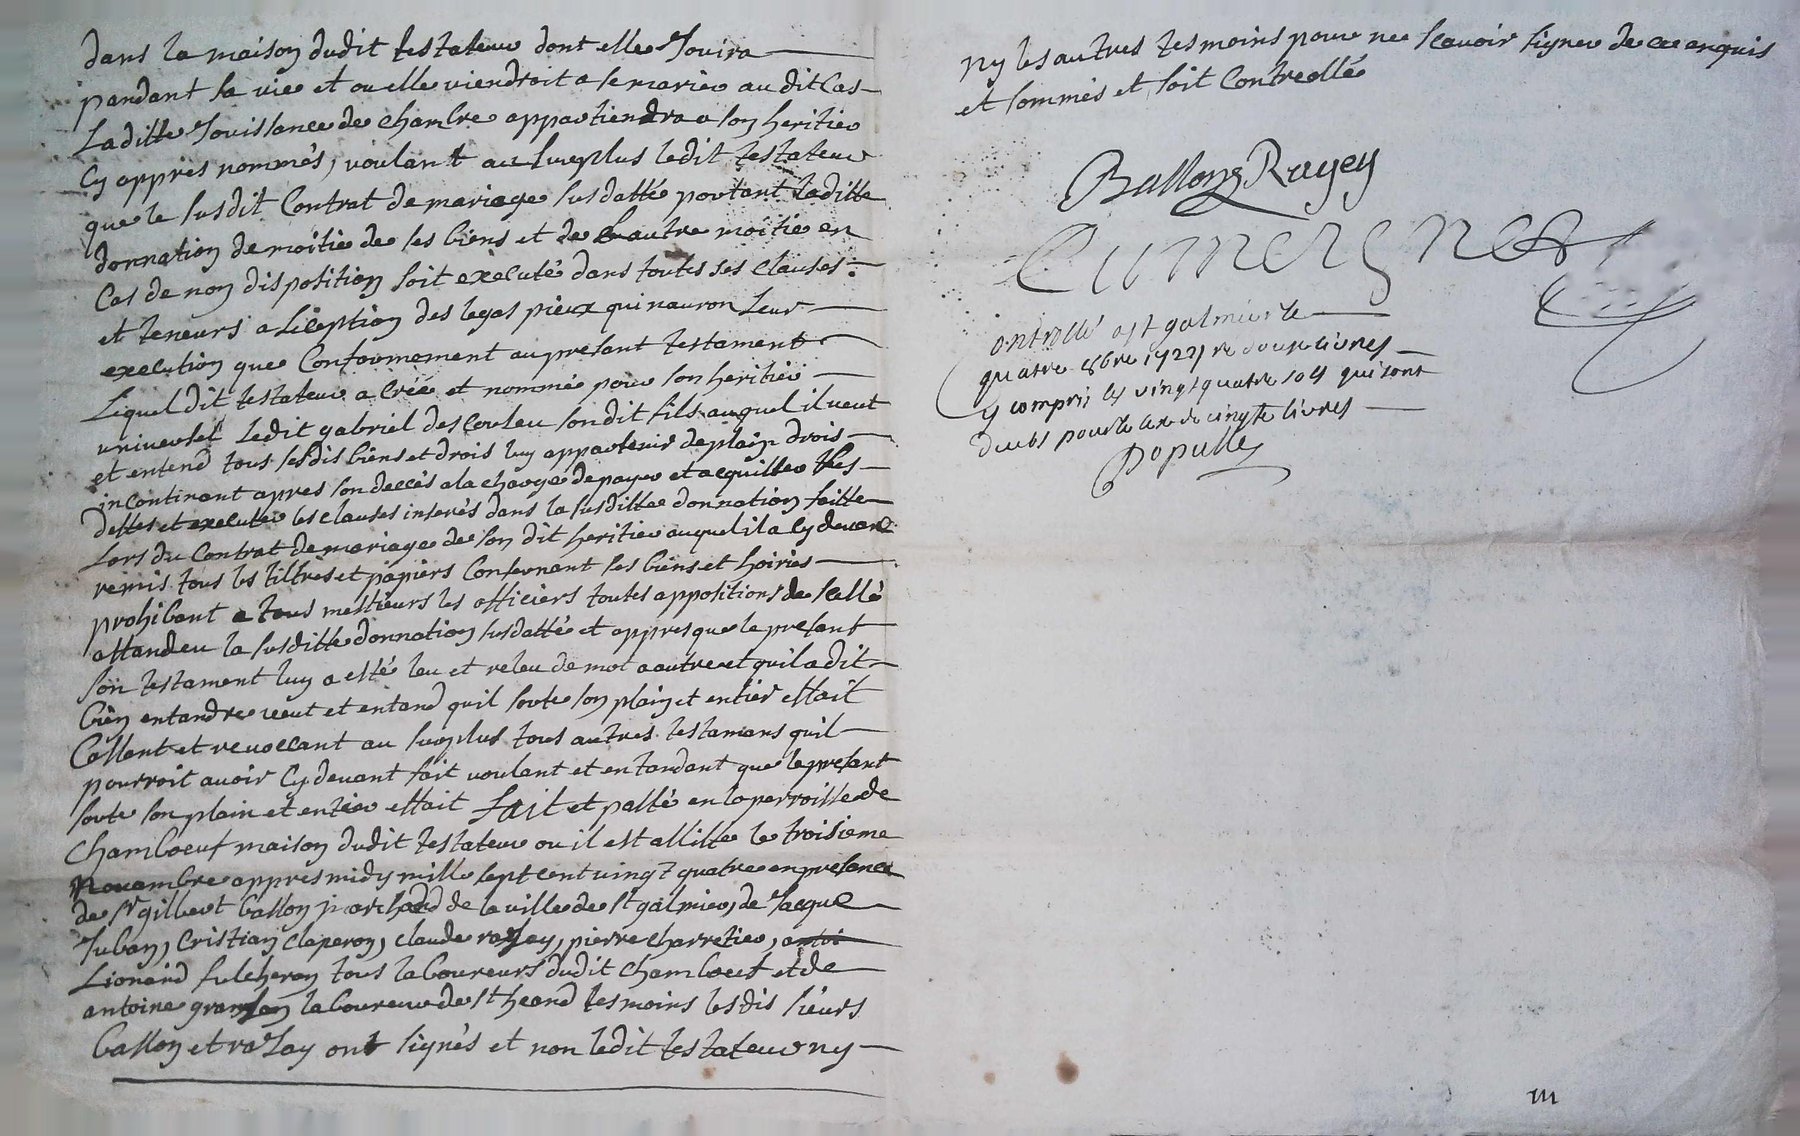 dans la maison dudit testateur dont elle Jouira
pandant sa vie et ou elle viendroit a se marier audit Cas
Laditte Jouissance de chambre appartiendra a son heritier
Cy appres nommés, voulant au surplus ledit testateur
que le susdit Contrat de mariage susdatté portant laditte
donnation de moitie de ses biens et de lautre moitie en
Cas de non disposition soit executé dans toutes ses clauses
et teneurs a Lexeption des legas pieux qui nauron Leur
execution que Conformement au presant testament
Lequel dit testateur a Créé et nommé pour son heritier
universel Ledit gabriel descouleu son dit fils auquel il veut
et entend tous sesdis biens et drois luy appartenir de plain drois
incontinant apres son deccés a la charge de payer et acquitter ses
dettes et executer les clauses inserés dans la susditte donnation faitte
Lors du Contrat de mariage de son dit heritier auquel il a Cy devant
remis tous les tiltres et papiers Consernant ses biens et hoiries
prohibant a tous messieurs les officiers toutes appositions de sellé
attandeu la susditte donnation susdatté et appres que le presant
son testament luy a esté leu et releu de mot a autre et quil a dit
bien entandre veut et entand quil sorte son plain et entier effait
Cassant et revoccant au surplus tous autres testamans quil
pourroit avoir Cy devant fait voulant et entandant que le presant
sorte son plain et entier effait fait et passé en la parroisse de
chambœuf maison dudit testateur ou il est allitté le troisieme
novambre appres midy mille sept cent vingt quatre en presance
de sr gilbert ballon marchand de la ville de st galmier, de Jacque
Juban, Cristian claperon, claude rajay, pierre charretier, antoi
Lionard fulcheron tous laboureurs dudit chambœuf et de
antoine granjon laboureur de st heand tesmoins lesdis sieurs
ballon et rajay ont signés et non ledit testateur ny
ny les autres tesmoins pour ne scavoir signer de ce enquis
et sommés et soit Controllé
Ballon Rayey
ontrollé a st galmier le
quatre 8bre 1724 re douze livres
y compris les vingt quatre sols qui sont
deubs pour le
livres
Populle
m